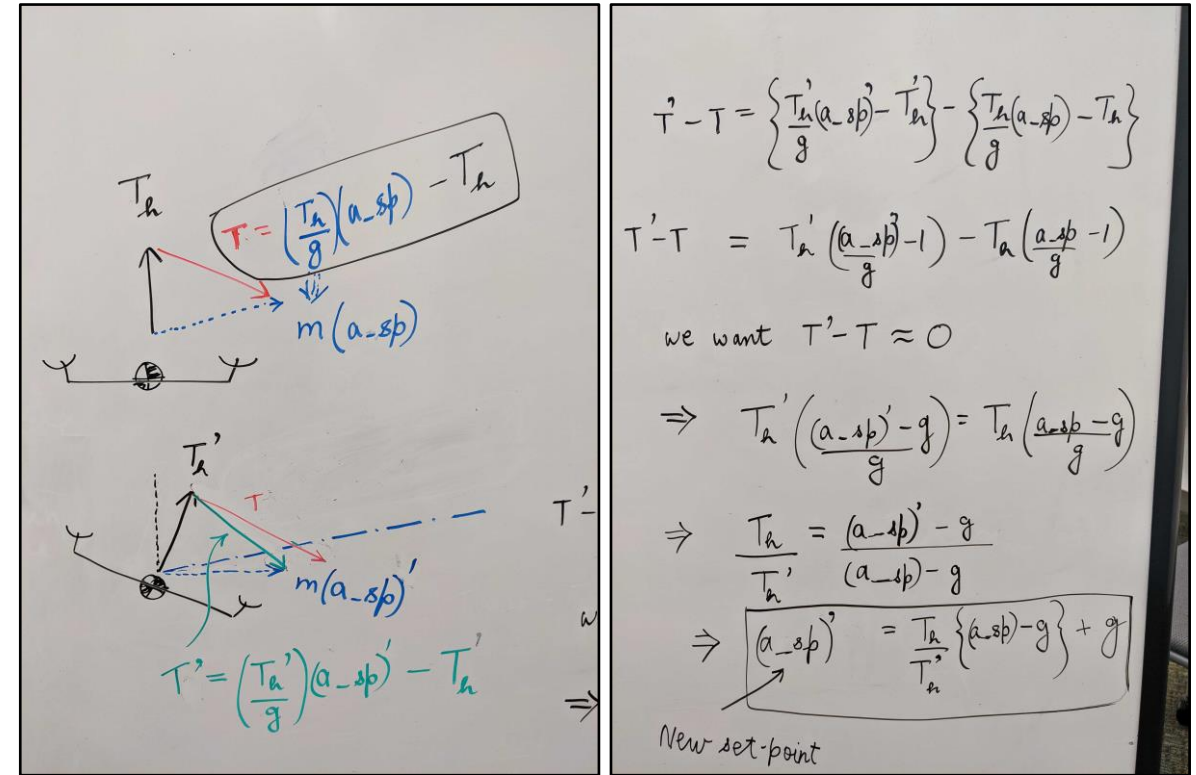 T_h
T = (T_h/g)(a_sp) - T_h
m(a_sp)
T_h'
T
m(a_sp)'
T' = (T_h'/g)(a_sp)' - T_h'
T'-
w
⇒
T' - T = {T_h'/g (a_sp)' - T_h'} - {T_h/g (a_sp) - T_h}
T'-T = T_h' ((a_sp)'/g - 1) - T_h (a_sp/g - 1)
we want T'-T ≈ 0
⇒ T_h' (((a_sp)' - g)/g) = T_h ((a_sp - g)/g)
⇒ T_h/T_h' = ((a_sp)' - g)/((a_sp) - g)
⇒ (a_sp)' = T_h/T_h' {(a_sp) - g} + g
New set-point